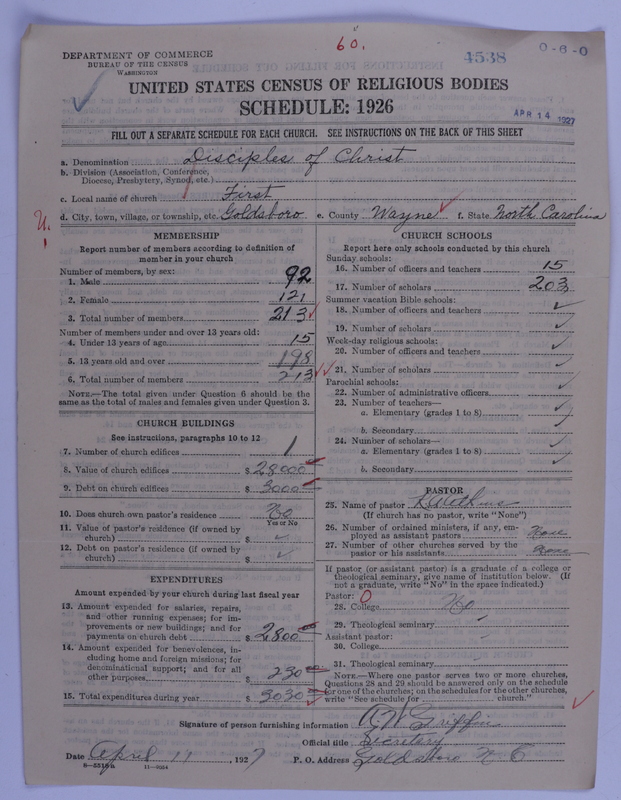 60.
4538
0-6-0
DEPARTMENT OF COMMERCE
BUREAU OF THE CENSUS
WASHINGTON
UNITED STATES CENSUS OF RELIGIOUS BODIES
SCHEDULE: 1926
APR 14 1927
FILL OUT A SEPARATE SCHEDULE FOR EACH CHURCH. SEE INSTRUCTIONS ON THE BACK OF THIS SHEET
a. Denomination Disciples of Christ
b. Division (Association, Conference,
Diocese, Presbytery, Synod, etc.)
c. Local name of church First
d. City, town, village, or township, etc. Goldsboro e. County Wayne f. State North Carolina
U.
MEMBERSHIP
Report number of members according to definition of
member in your church
Number of members, by sex:
1. Male 92
2. Female 121
3. Total number of members 213
Number of members under and over 13 years old:
4. Under 13 years of age 15
5. 13 years old and over 198
6. Total number of members 213
NOTE.—The total given under Question 6 should be the
same as the total of males and females given under Question 3.
CHURCH BUILDINGS
See instructions, paragraphs 10 to 12
7. Number of church edifices 1
8. Value of church edifices $ 28000
9. Debt on church edifices $ 3000
10. Does church own pastor's residence No
Yes or No
11. Value of pastor's residence (if owned by
church) $
12. Debt on pastor's residence (if owned by
church) $
EXPENDITURES
Amount expended by your church during last fiscal year
13. Amount expended for salaries, repairs,
and other running expenses; for im-
provements or new buildings; and for
payments on church debt $ 2800
14. Amount expended for benevolences, in-
cluding home and foreign missions; for
denominational support; and for all
other purposes $ 230
15. Total expenditures during year $ 3030
CHURCH SCHOOLS
Report here only schools conducted by this church
Sunday schools:
16. Number of officers and teachers 15
17. Number of scholars 203
Summer vacation Bible schools:
18. Number of officers and teachers
19. Number of scholars
Week-day religious schools:
20. Number of officers and teachers
21. Number of scholars
Parochial schools:
22. Number of administrative officers
23. Number of teachers—
a. Elementary (grades 1 to 8)
b. Secondary
24. Number of scholars—
a. Elementary (grades 1 to 8)
b. Secondary
PASTOR
25. Name of pastor
(If church has no pastor, write "None")
26. Number of ordained ministers, if any, em-
ployed as assistant pastors None
27. Number of other churches served by the
pastor or his assistants None
If pastor (or assistant pastor) is a graduate of a college or
theological seminary, give name of institution below. (If
not a graduate, write "No" in the space indicated.)
Pastor: 0
28. College No
29. Theological seminary
Assistant pastor:
30. College
31. Theological seminary
NOTE.—Where one pastor serves two or more churches,
Questions 28 and 29 should be answered only on the schedule
for one of the churches; on the schedules for the other churches,
write "See schedule for church."
Signature of person furnishing information Griffin
Official title Secretary
Date April 11, 1927 P. O. Address Goldsboro N C
8—5518a 11—9024